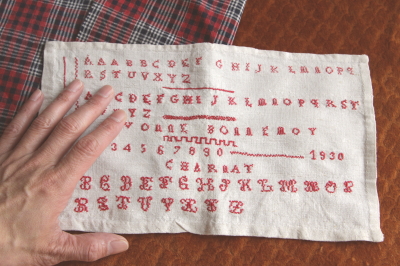 AAABBCDEF GHIJKLMNOPQ
RSTUVXYZ
CDEFGHIJKLMNOPQRST
YZ
VONNE BONNEMOY
34567890 1930
CHARNAY
BCDEFGHIJKLMNOP
RSTUVXYZ